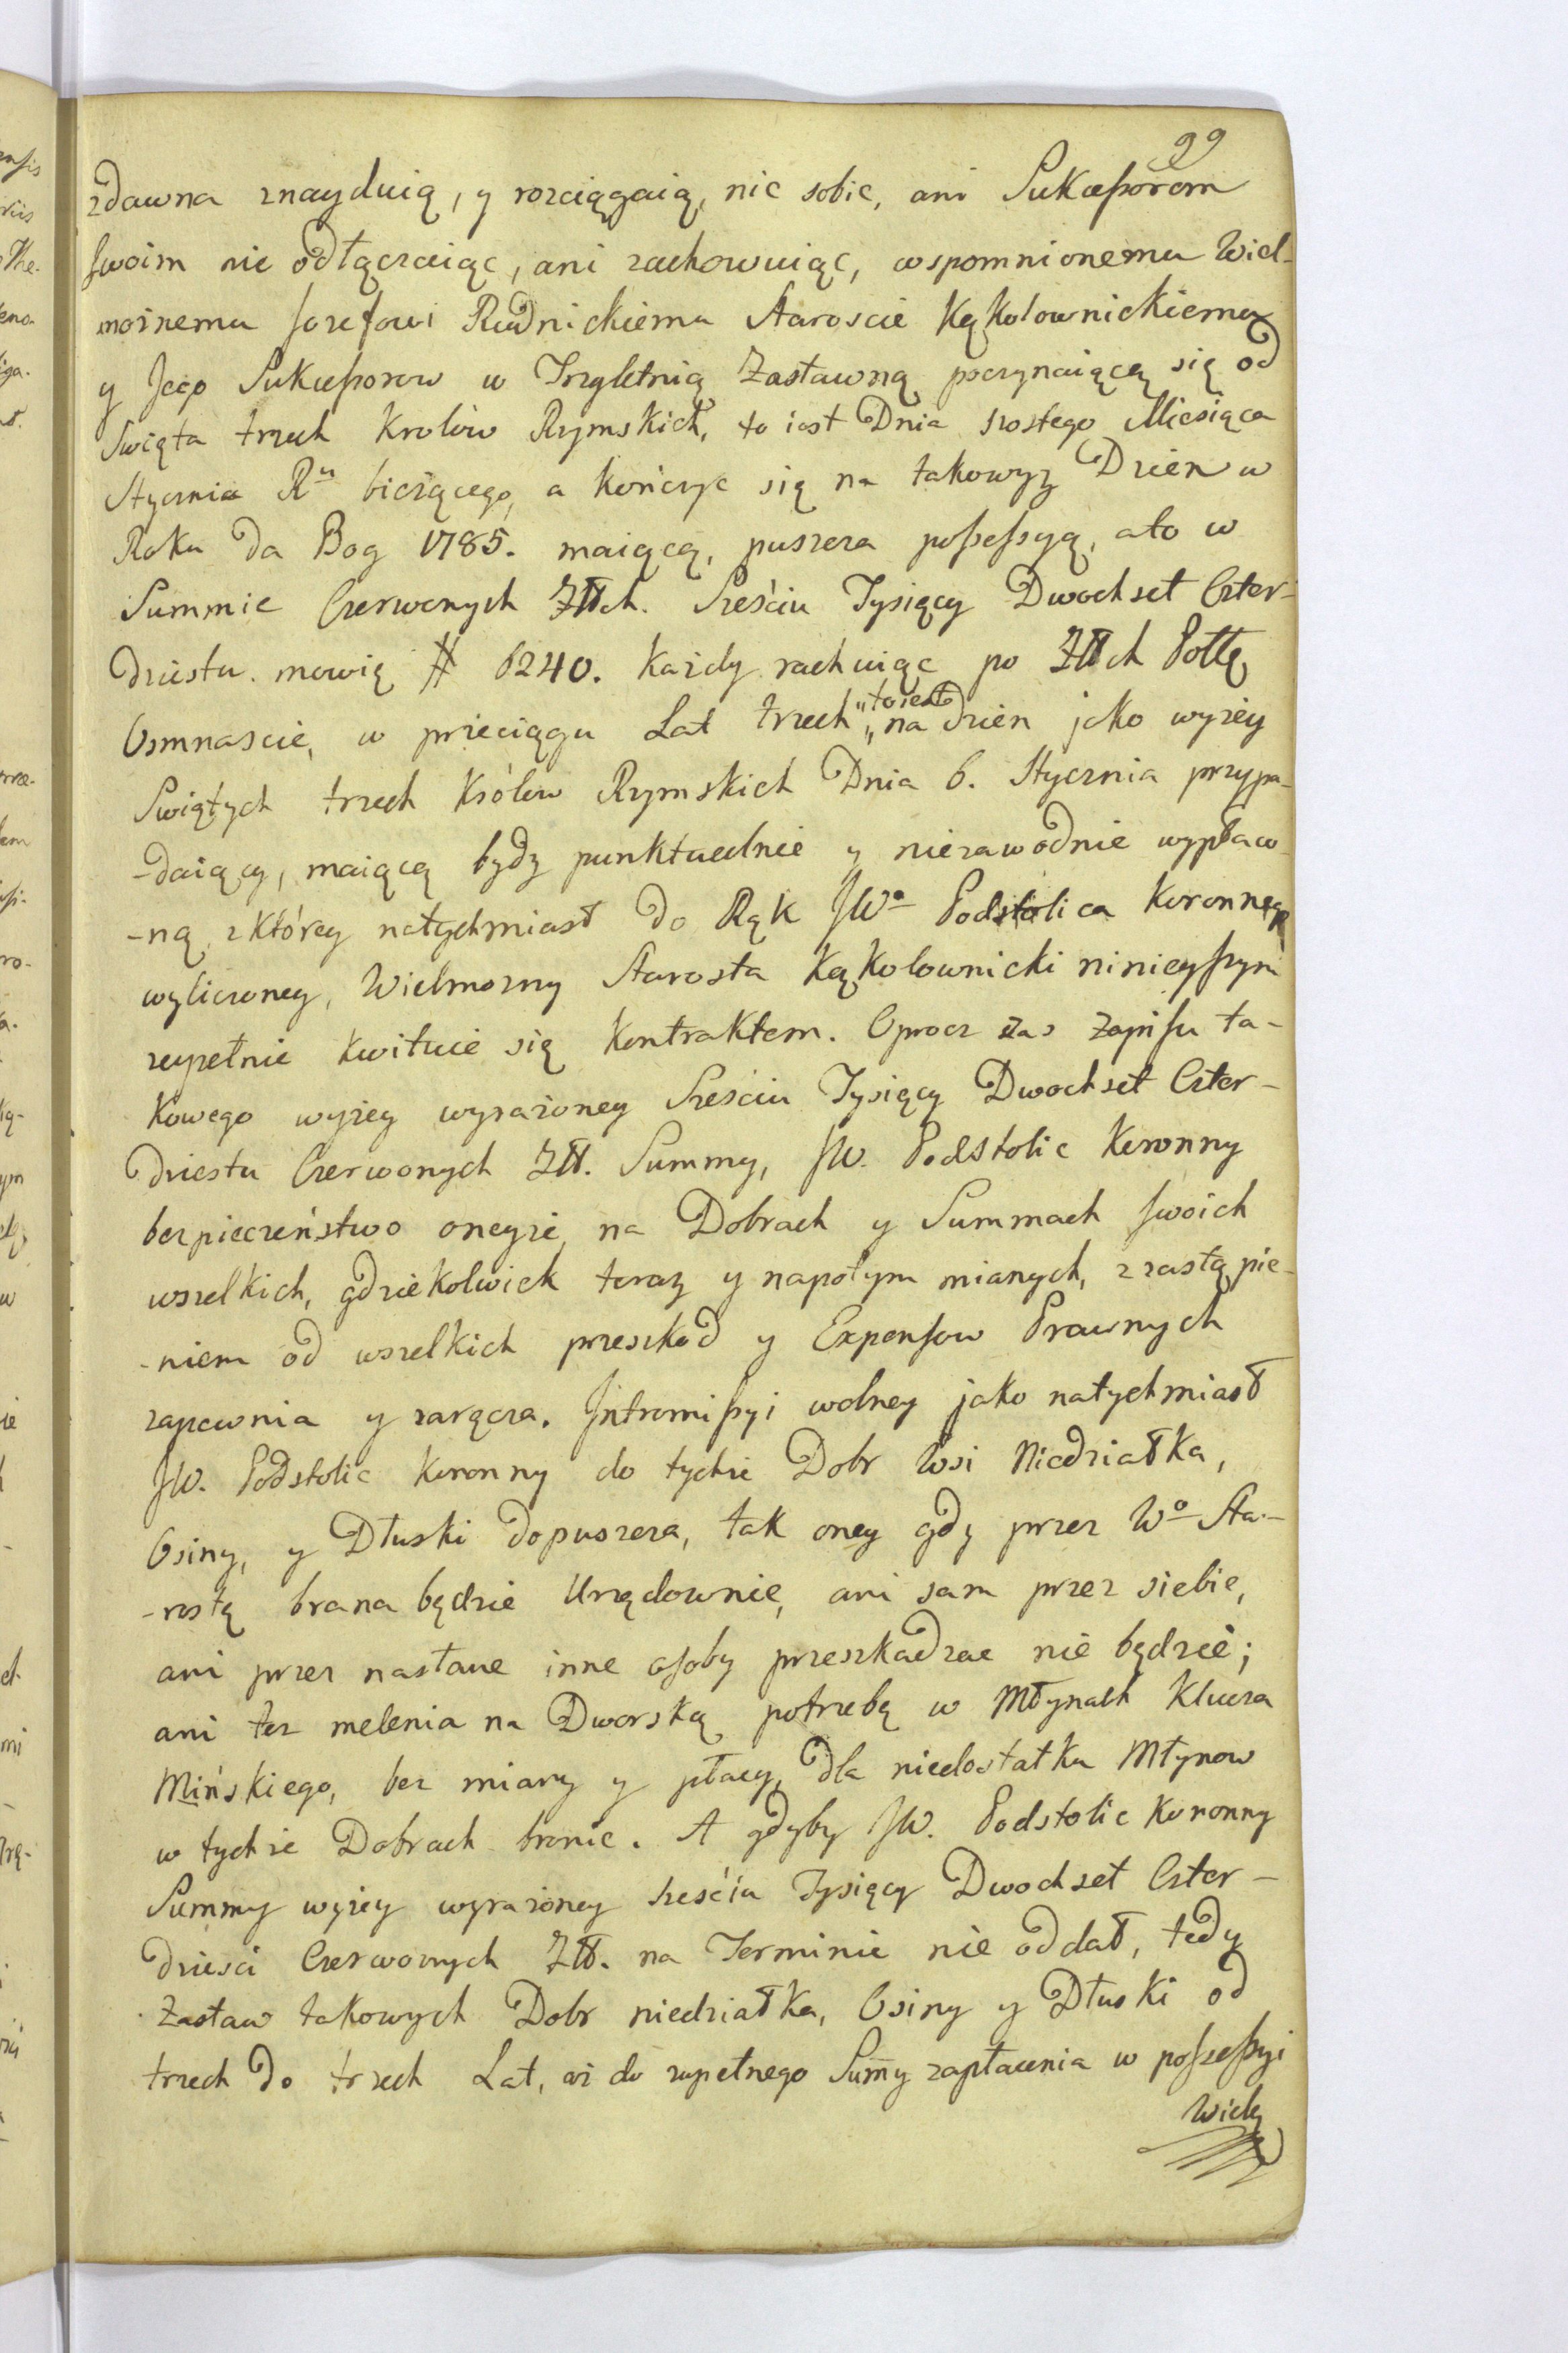 99
zdawna znayduią, y rozciągaią, nic sobie, ani Sukceßorom
swoim nie odłączaiąc, ani zachowuiąc, wspomnionemu Wiel-
możnemu Jozefowi Rudnickiemu Staroscie Kąkolownickiemu
y Jego Sukceßorow w Trzyletnią Zastawną poczynaiącą się od
Swięta trzech Krolów Rzymskich, to iest Dnia szostego Miesiąca
Stycznia Ru bieżącego, a kończyc się na takowyz Dzien w
Roku da Bog 1785. maiącą, puszcza poßeßyą, a to w
Summie Czerwonych Złłch. Sześciu Tysięcy Dwochset Czter-
dziestu. mowię # 6240. Każdy rachuiąc po Złłch Polłł
Osmnascie, w przeciągu Lat trzech „to iest„ na dzien jako wyżey
Swiętych trzech Królow Rzymskich Dnia 6. Stycznia przypa-
-daiący, maiącą bydz punktualnie y niezawodnie wypłaco-
-ną, z którey natychmiast do Rąk JWo Podstolica Koronnego
wyliczoney, Wielmozny Starosta Kąkolownicki ninieyszym
zupełnie kwituie się kontraktem. Oprocz zas Zapisu ta-
kowego wyżey wyrażoney Sześciu Tysięcy Dwochset Czter-
dziestu Czerwonych Złł. Summy, JW. Podstolic Koronny
bezpieczeństwo oneyże, na Dobrach y Summach swoich
wszelkich, gdziekolwiek teraz y napotym mianych, z zastąpie-
-niem od wszelkich przeszkod y Expensow Prawnych
zapewnia y zaręcza. Jntromißyi wolney jako natychmiast
JW. Podstolic Koronny do tychże Dobr Wsi Niedziałka,
Osiny, y Dłuski dopuszcza, tak oney gdy przez Wo Sta-
-rostę brana będzie Urzędownie, ani sam przez siebie,
ani przez nasłane inne osoby przeszkadzac nie będzie;
ani tez melenia na Dworską potrzebę w Młynach Klucza
Mińskiego, bez miary y płacy, dla niedostatku Młynow
w tychże Dobrach bronic. A gdyby JW. Podstolic Koronny
Summy wyżey wyrażoney sześciu Tysięcy Dwochset Czter-
dziesci Czerwonych Złł. na Terminie nie oddał, tedy
Zastaw takowych Dobr niedziałka, Osiny y Dłuski od
trzech do trzech Lat, aż do zupełnego Sumy zapłacenia w poßeßyi
Wielg